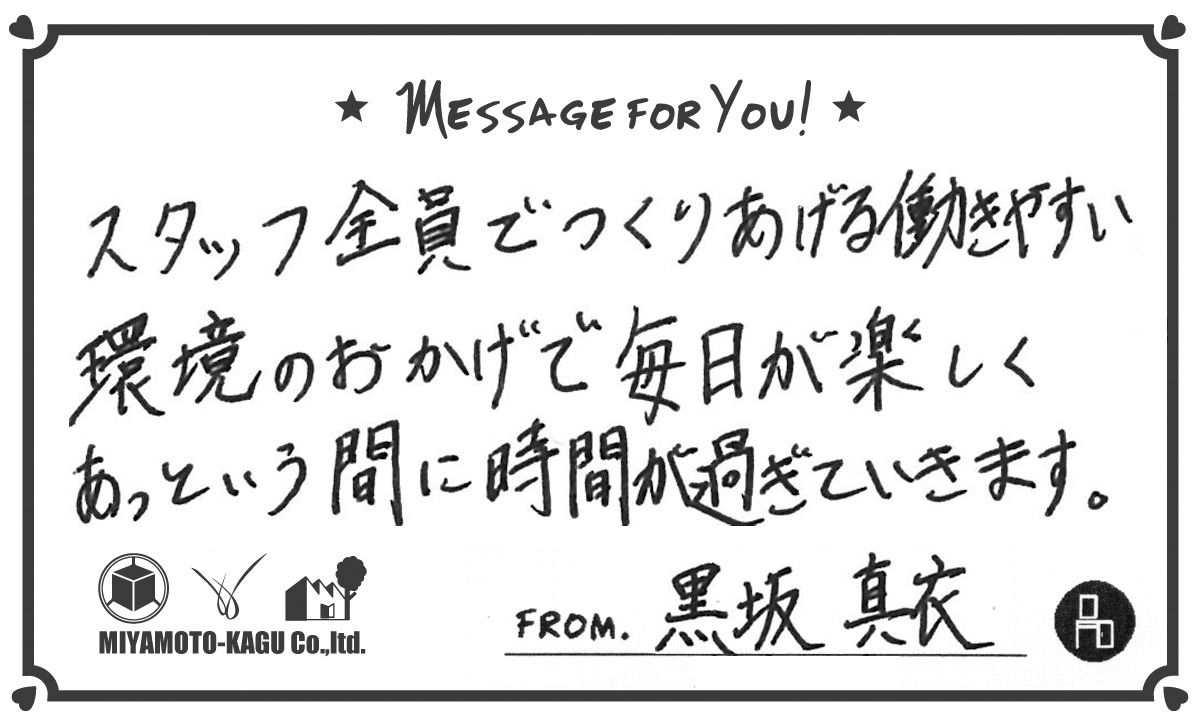 ★ MESSAGE FOR YOU! ★
スタッフ全員でつくりあげる働きやすい
環境のおかげで毎日が楽しく
あっという間に時間が過ぎていきます。
FROM. 黒坂 真衣
MIYAMOTO-KAGU Co.,ltd.